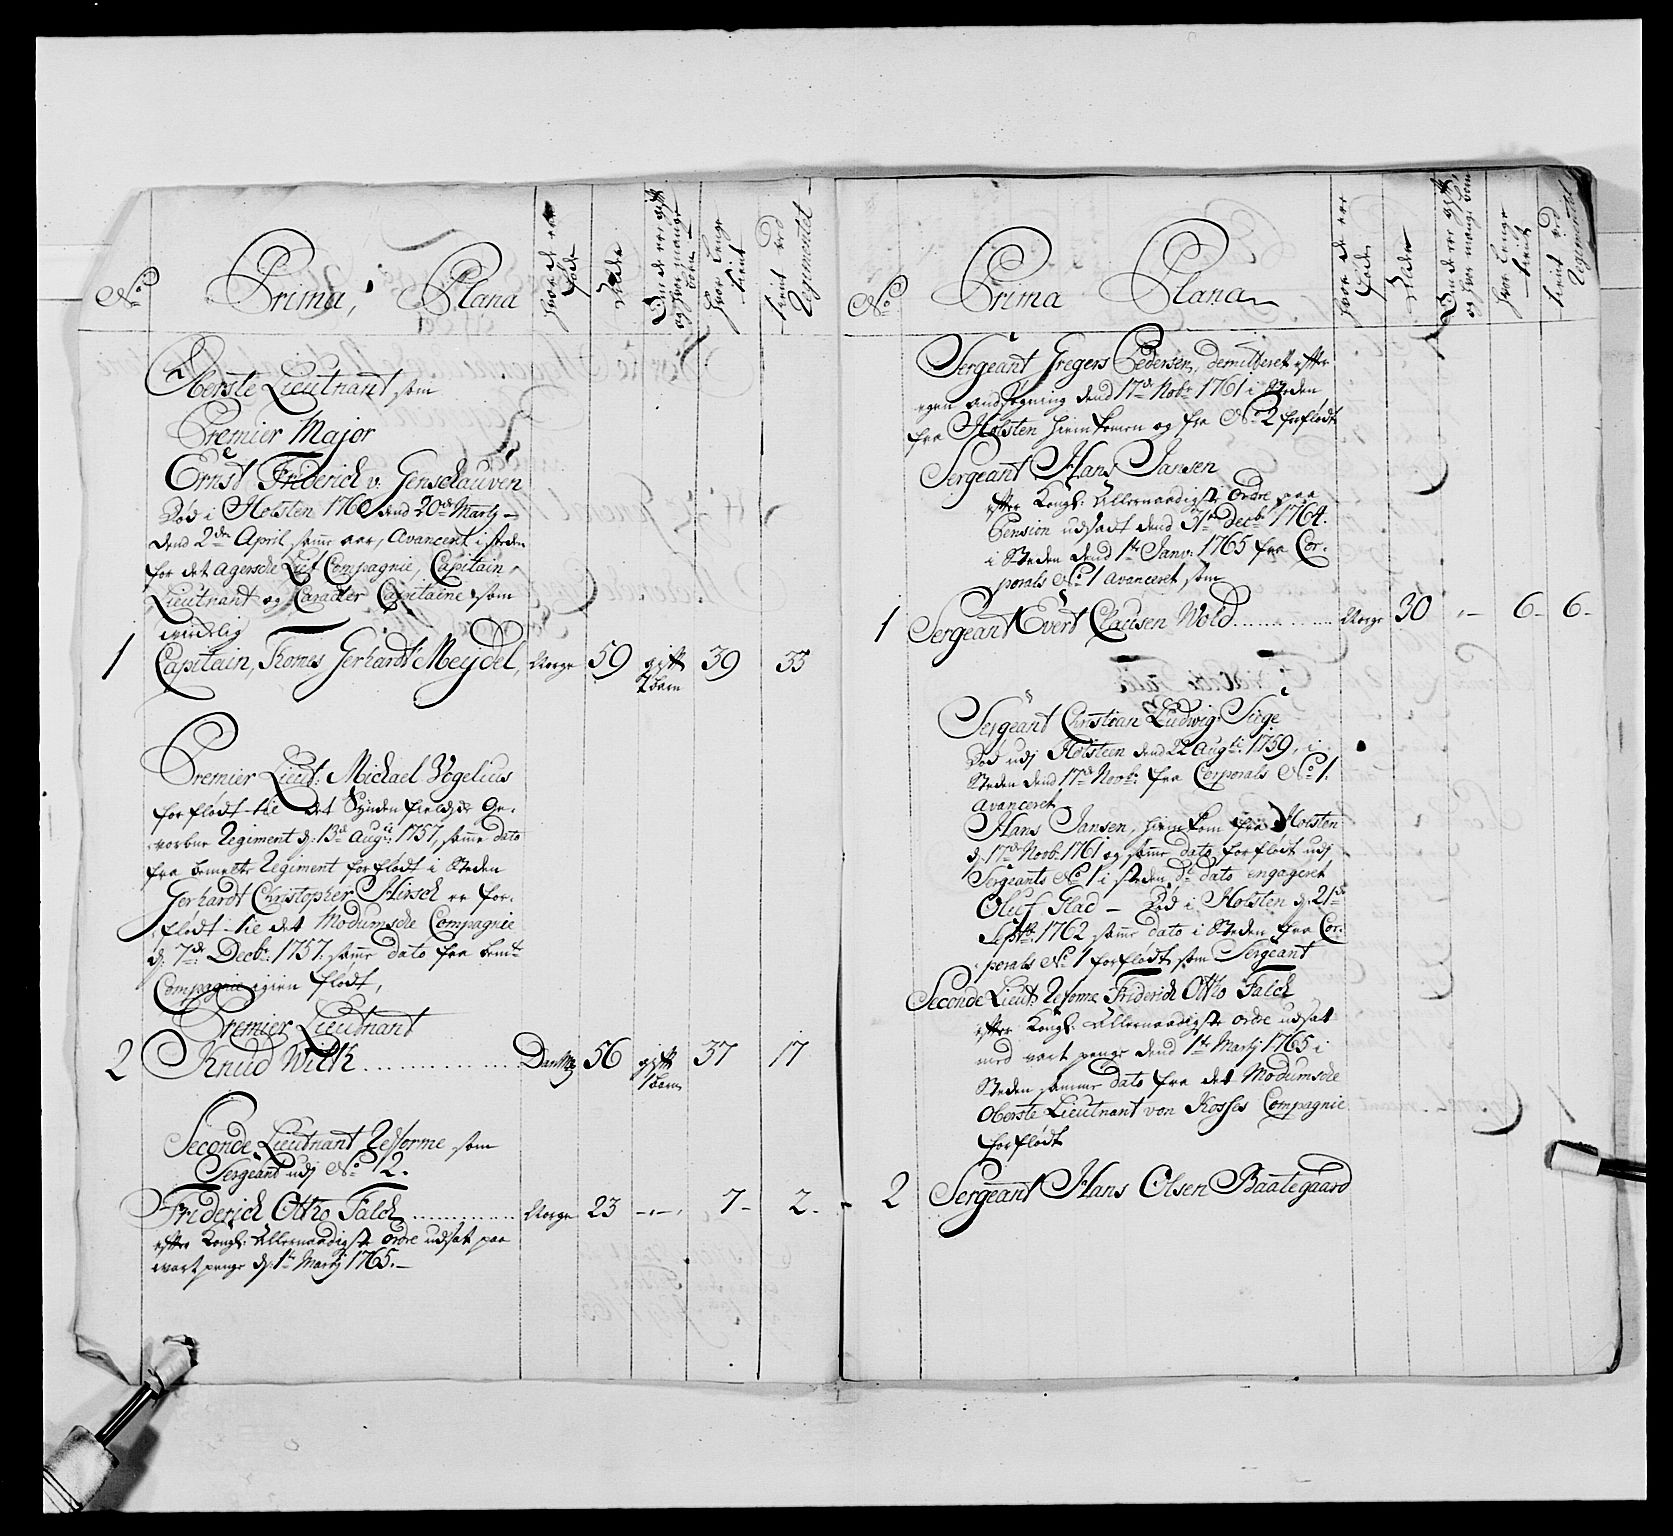 No
Prima, Plana
hvor de ere
fødde
Alder
Om de ere gift
og hvor mange
børn
hvor lenge
tient
tient ved
Regimentet
Oberste Lieutnant som
Premier Major
Ernst Friderich v: Genschauven
Død i Holsten 1760 dend 20de Martj
dend 2den April samme aar, Avancerit i steden
for det agersche Lief Compagnie, Capitain
Lieutnant og Caracter Capitaine som
1 Capitain, Thomes Gerhardt Meydel, Norge 59 gift 39 35
børn
Premier Lieut: Michael Vogelius
forflødt til det Synden fieldske Ge-
vorbne Regiment d: 13de Augti: 1757, samme dato
fra bemelte Regiment forflødt i Steden
Gerhardt Christopher Hirsch er for-
flødt til det Modumsche Compagnie
d: 7de Decbr: 1757. samme dato fra bemte
Compagnie igien flødt,
Premier Lieutnant
2 Knud With Danmk 56 gift 37 17
1 børn
Seconde Lieutnant Reforme som
Sergeant udj No 2.
Friderich Otto Falch Norge 23 -.- 7- 2.
efter Kongl: Allernaadigste ordre udsat paa
wart penge d: 1te Martj 1765.-
No
Prima Plana
hvor de ere
fødde
Alder
Om de ere gift
og hvor mange børn
hvor lenge
tient
tient ved
Regimentet
Sergeant Gregers Pedersen, demitteret efter
egen andsøgning dend 17de Novbr 1761 i Steden,
fra Holsten hiemkomen og fra No 2 forflødt
Sergeant Hans Jansen
efter Kongl: Allernaadigste ordre paa
Pension udsadt dend 31te Decbr 1764.
i Steden dend 1te Janv: 1765 fra Cor-
porals No 1 avanceret som
1 Sergeant Evert Clausen Wold Norge 30 - 6- 6-
Sergeant Christian Ludwig Siege
Død udj Holsteen dend 22 Augti: 1759, i
Steden dend 17de Novbr: fra Corporals No 1.
Avanceret
Hans Jansen, hiemkom fra Holsten
d: 17de Novb: 1761 og samme dato forflødt udj
Sergeants No 1 i steden Dto dato engageret
Oluf Glad - Død i Holsten d: 21de
Septb: 1762 samme dato i Steden fra Cor-
porals No 1 forflødt som Sergeant
Seconde Lieut: Reforme Friderich Otto Falch
efter Kongl: Allernaadigste ordre udsat
med wart penge dend 1te Martj 1765 i
Steden samme dato fra det Modumsche
Oberste Lieutnant von Kosses Compagnie
forflødt
2 Sergeant Hans Olsen Baategaard